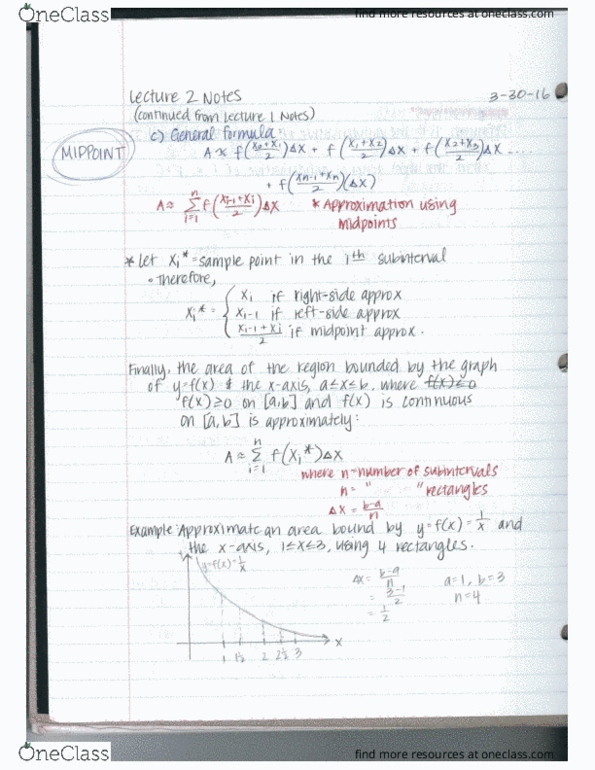 OneClass
find more resources at oneclass.com
Lecture 2 Notes 3-30-16
(continued from Lecture 1 Notes)
c) General formula:
MIDPOINT
A ≈ f((x₀+x₁)/2)Δx + f((x₁+x₂)/2)Δx + f((x₂+x₃)/2)Δx ....
+ f((xn-1+xn)/2)(Δx)
A≈ Σ(i=1 to n) f((xi-1+xi)/2)Δx * Approximation using
midpoints
* Let xi* = sample point in the ith subinterval
• Therefore,
xi* = { xi if right-side approx
xi-1 if left-side approx
(xi-1+xi)/2 if midpoint approx.
Finally, the area of the region bounded by the graph
of y=f(x) & the x-axis, a≤x≤b, where f(x)≤0
f(x)≥0 on [a,b] and f(x) is continuous
on [a,b] is approximately:
A ≈ Σ(i=1 to n) f(xi*)Δx
where n=number of subintervals
n= " " rectangles
Δx = (b-a)/n
Example: Approximate an area bound by y=f(x)=1/x and
the x-axis, 1≤x≤3, using 4 rectangles.
y
y=f(x)=1/x
Δx = (b-a)/n a=1, b=3
= (3-1)/2 n=4
= 1/2
x
1 1½ 2 2½ 3
OneClass
find more resources at oneclass.com